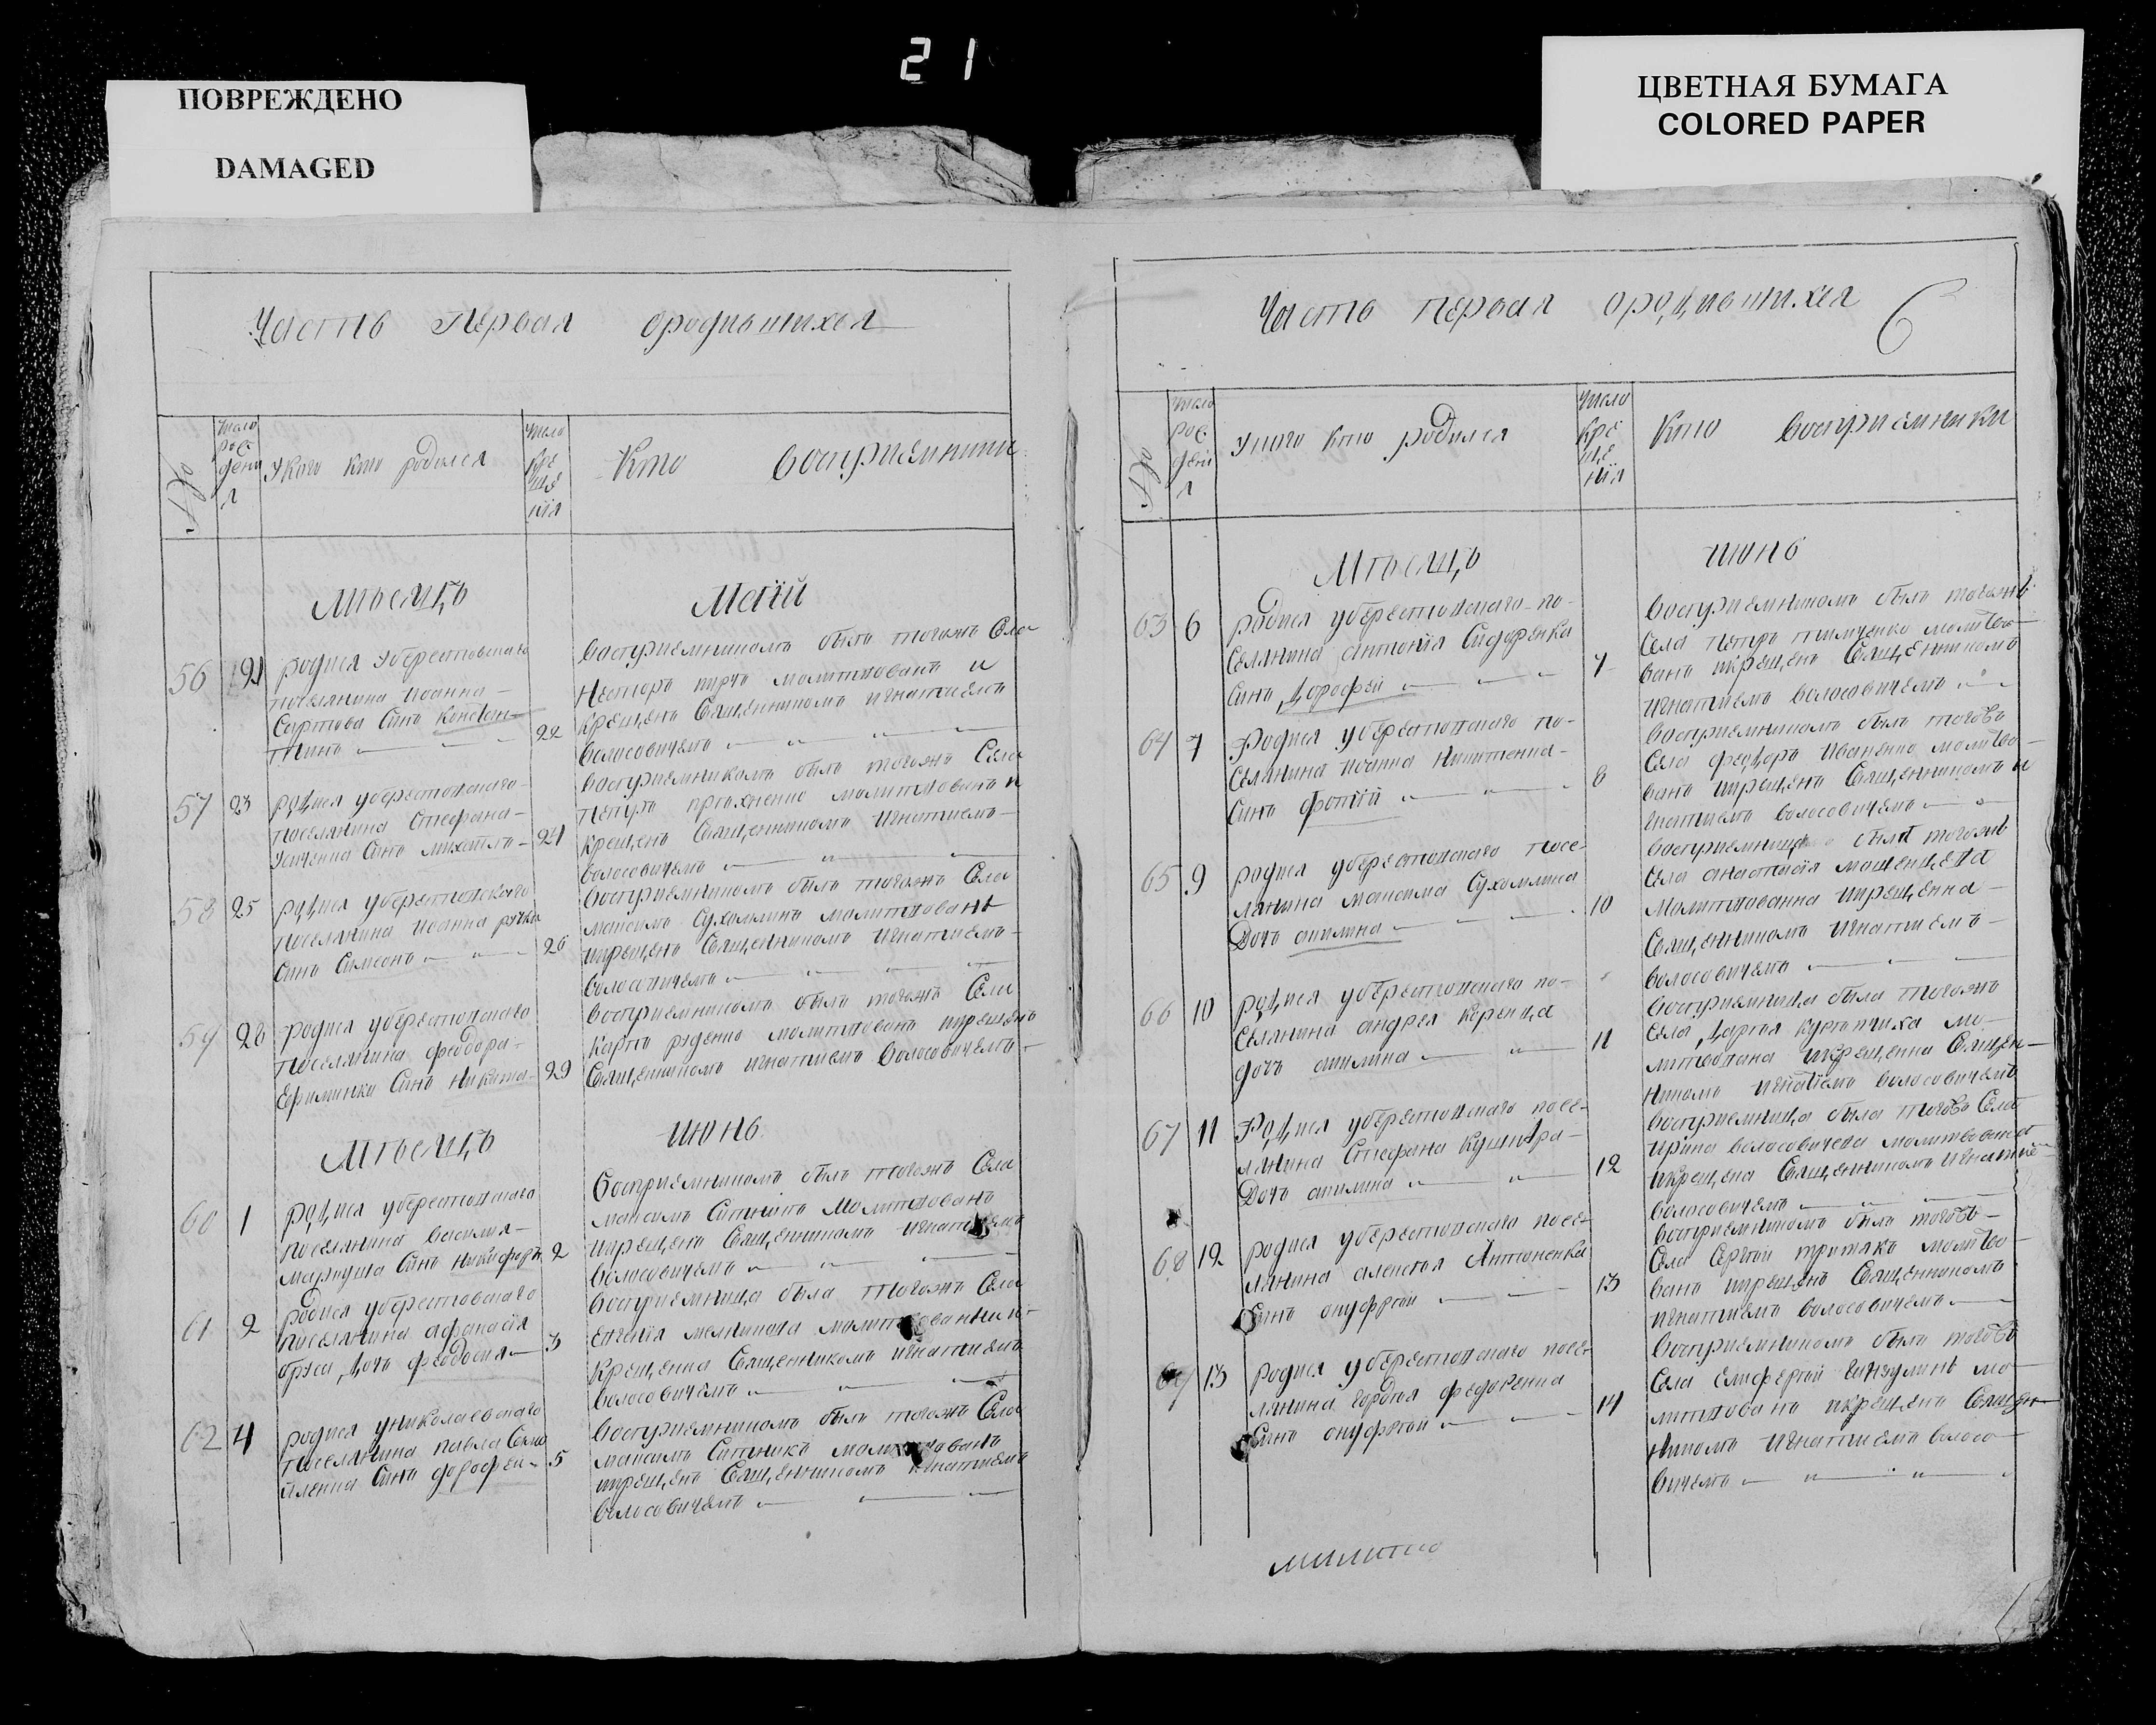 21
ПОВРЕЖДЕНО
DAMAGED
ЦВЕТНАЯ БУМАГА
COLORED PAPER
Часть Первая ородившихся
№
Число рождения
Укого кто родился
Число крещенія
Кто восприемники
Мѣсяцъ Маій
56 21 родися Уберестовскаго
поселянина иоанна
Сына Констан-
тинъ 22
восприемникомъ былъ тогожъ Села
Несторъ молитвованъ и
крещенъ Священникомъ игнатиемъ
волосовичемъ
57 23 родися уберестовскаго
поселянина Стефана
Сынъ михаилъ 24
восприемникомъ былъ тогожъ Села
Петръ молитвованъ и
крещенъ Священникомъ игнатиемъ
волосовичемъ
58 25 родися уберестовскаго
поселянина иоанна
Синъ Симеонъ 26
восприемникомъ былъ тогожъ Села
максимъ Сухомлинъ молитвованъ
икрещенъ Священникомъ игнатиемъ
волосовичемъ
59 28 родися уберестовскаго
поселянина феодора
Ефименка Синъ Никита 29
восприемникомъ былъ тогожъ Села
Карпъ руденко молитвованъ икрещенъ
Священникомъ игнатиемъ волосовичемъ
Мѣсяцъ июнь
60 1 родися уберестовскаго
поселянина василия
Синъ Никифоръ 2
Восприемникомъ былъ тогожъ Села
максимъ Ситникъ Молитвованъ
икрещенъ Священникомъ игнатиемъ
волосовичемъ
61 2 родися уберестовскаго
поселянина афанасія
дочь феодосия 3
восприемница была тогожъ Села
молитвованна и
крещенна Священникомъ игнатиемъ
волосовичемъ
62 4 родися униколаевскаго
поселянина павла
Синъ дорофей 5
восприемникомъ былъ тогожъ Села
максимъ Ситникъ молитвованъ
икрещенъ Священникомъ игнатиемъ
волосовичемъ
Часть первая ородившихся 6
№
Число рождения
Укого кто родился
Число крещенія
Кто Восприемники
Мѣсяцъ июнь
63 6 родися уберестовскаго по-
селянина антонія Сидоренка
Синъ дорофей 7
восприемникомъ былъ тогожъ
Села петръ молитво-
ванъ икрещенъ Священникомъ
игнатиемъ волосовичемъ
64 7 Родися уберестовскаго по-
селянина иоанна Никитенка
Синъ фотій 8
восприемникомъ былъ тогожъ
Села феодоръ иваненко молитво-
ванъ икрещенъ Священникомъ и
гнатиемъ волосовичемъ
65 9 родися уберестовскаго посе-
лянина максима Сухомлина
Дочь акилина 10
восприемница была тогожъ
Села анастасія
Молитвованна икрещенна
Священникомъ игнатиемъ
волосовичемъ
66 10 родися уберестовскаго по-
селянина андрея
дочь акилина 11
восприемница была тогожъ
Села дарья мо-
литвована икрещенна Священ-
никомъ игнатіемъ волосовичемъ
67 11 Родися уберестовскаго посе-
лянина Стефана Кушнѣра
Дочь акилина 12
восприемница была тогожъ Села
ирина волосовичева молитвована
икрещена Священникомъ игнатие
волосовичемъ
68 12 родися уберестовскаго посе-
лянина алексея Антоненка
Синъ онуфрій 13
восприемникомъ былъ тогожъ
Села Сергій притакъ молитво-
ванъ икрещенъ Священникомъ
игнатиемъ волосовичемъ
69 13 родися уберестовскаго посе-
лянина гордея федоренка
Синъ онуфрій 14
восприемникомъ былъ тогожъ
Села мо-
литвованъ икрещенъ Священ-
никомъ игнатиемъ волосо-
вичемъ